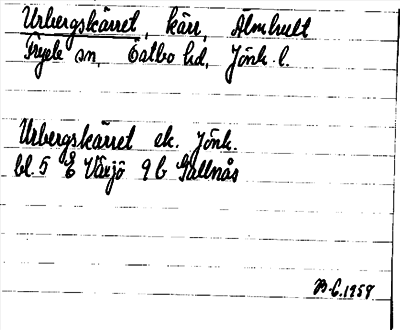 Urbergskärret, kärr, Älmhult
Fryele sn, Östbo hd, Jönk. l.
Urbergskärret ek. Jönk.
bl. 5 E Växjö 9 b Gällnås
B-C. 1958